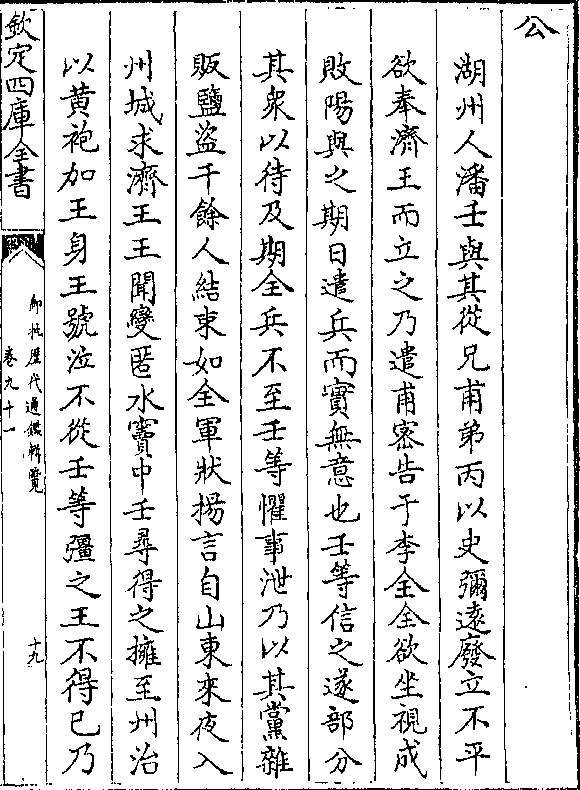 公
湖州人潘壬與其從兄甫弟丙以史彌遠廢立不平
欲奉濟王而立之乃遣甫宻告于李全全欲坐視成
敗陽與之期日遣兵而實無意也壬等信之遂部分
其衆以待及期全兵不至壬等懼事泄乃以其黨雜
販鹽盗千餘人結束如全軍狀揚言自山東來夜入
州城求濟王王聞變匿水竇中壬尋得之擁至州治
以黄袍加王身王號泣不從壬等彊之王不得已乃
欽定四庫全書
御批歷代通鑑輯覽
卷九十一
十九